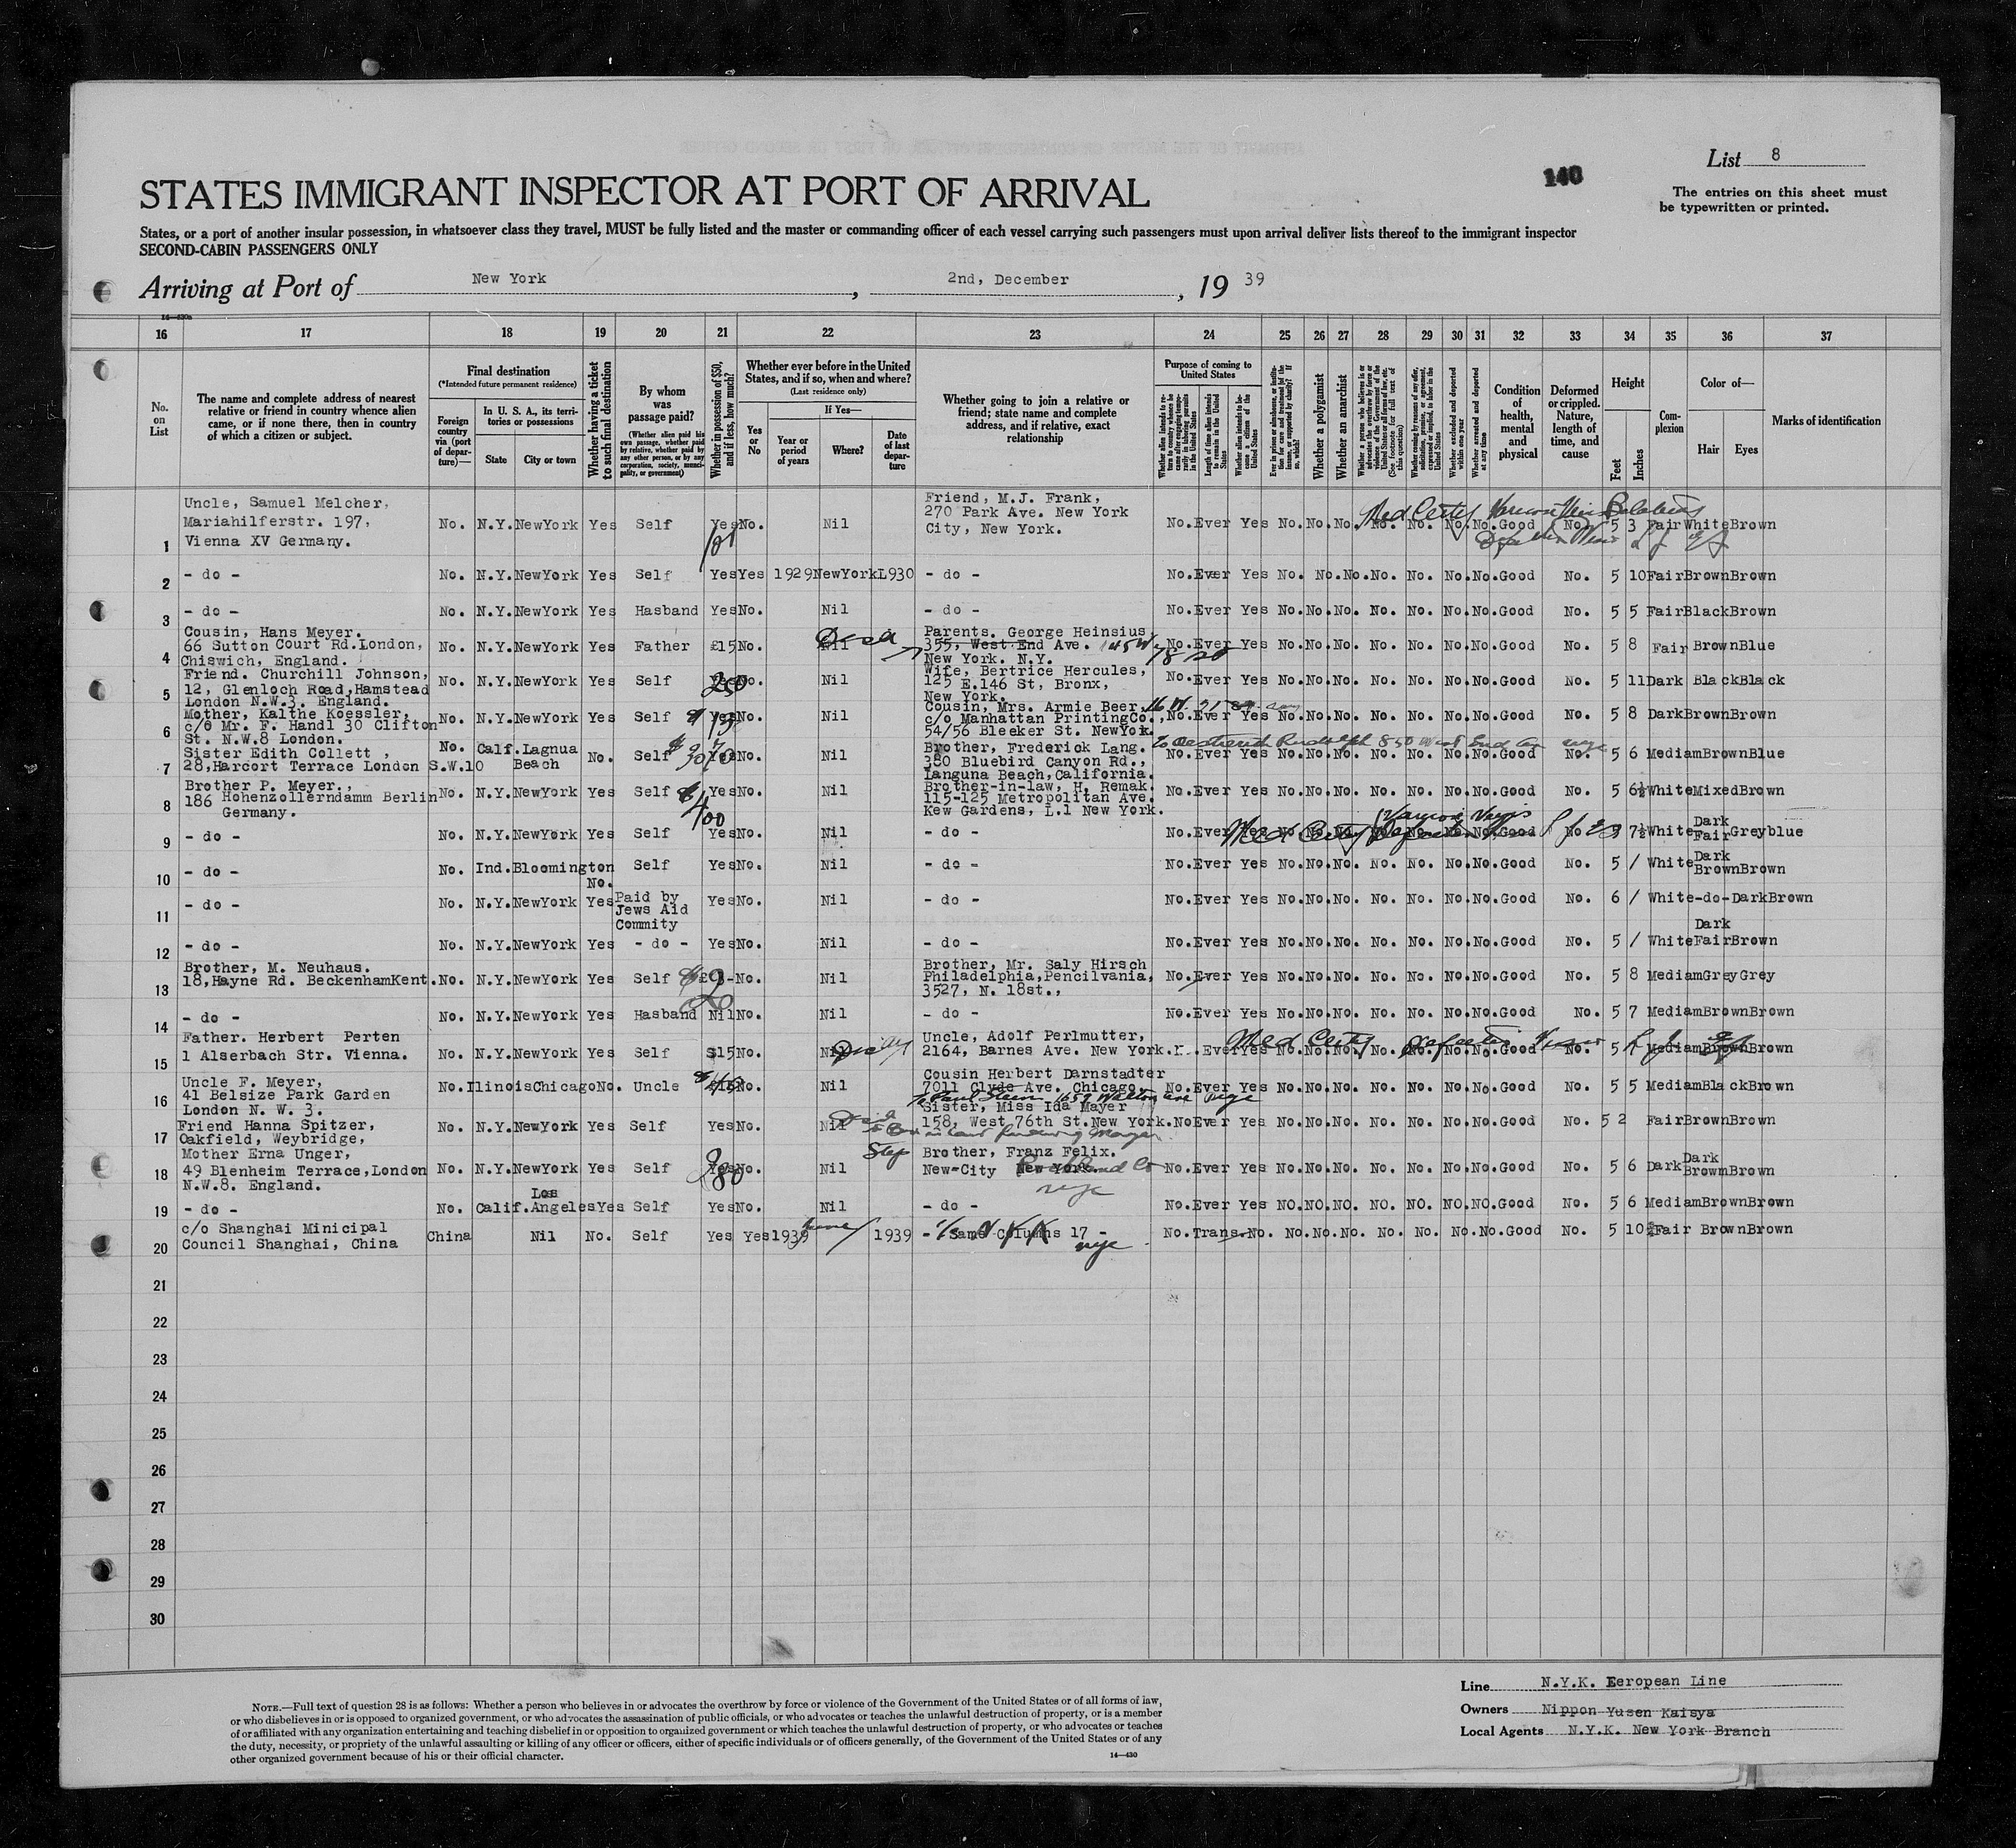 List 8
140
The entries on this sheet must
be typewritten or printed.
STATES IMMIGRANT INSPECTOR AT PORT OF ARRIVAL
States, or a port of another insular possession, in whatsoever class they travel, MUST be fully listed and the master or commanding officer of each vessel carrying such passengers must upon arrival deliver lists thereof to the immigrant inspector
SECOND-CABIN PASSENGERS ONLY
Arriving at Port of New York, 2nd, December, 19 39
16 17 18 19 20 21 22 23 24 25 26 27 28 29 30 31 32 33 34 35 36 37
No. on List
The name and complete address of nearest relative or friend in country whence alien came, or if none there, then in country of which a citizen or subject.
Final destination
(*Intended future permanent residence)
Foreign country via (port of departure)—
In U. S. A., its territories or possessions
State
City or town
Whether having a ticket to such final destination
By whom was passage paid?
(Whether alien paid his own passage, whether paid by relative, whether paid by any other person, or by any corporation, society, municipality, or government)
Whether in possession of $50, and if less, how much?
Whether ever before in the United States, and if so, when and where?
(Last residence only)
Yes or No
If Yes—
Year or period of years
Where?
Date of last departure
Whether going to join a relative or friend; state name and complete address, and if relative, exact relationship
Purpose of coming to United States
Whether alien intends to return to country whence he came after engaging temporarily in laboring pursuits in the United States
Length of time alien intends to remain in the United States
Whether alien intends to become a citizen of the United States
Ever in prison or almshouse, or institution for care and treatment of the insane, or supported by charity? If so, which?
Whether a polygamist
Whether an anarchist
Whether a person who believes in or advocates the overthrow by force or violence of the Government of the United States or all forms of law, etc. (See footnote for full text of this question)
Whether coming by reason of any offer, solicitation, promise, or agreement, expressed or implied, to labor in the United States
Whether excluded and deported within one year
Whether arrested and deported at any time
Condition of health, mental and physical
Deformed or crippled. Nature, length of time, and cause
Height
Feet
Inches
Complexion
Color of—
Hair
Eyes
Marks of identification
1 Uncle, Samuel Melcher, Mariahilferstr. 197, Vienna XV Germany. No. N.Y. NewYork Yes Self Yes No. Nil Friend, M.J. Frank, 270 Park Ave. New York City, New York. No. Ever Yes No. No. No. No. No. No. No. Good No. 5 3 Fair White Brown
Med Certy
2 - do - No. N.Y. NewYork Yes Self Yes Yes 1929 NewYork 1930 - do - No. Ever Yes No. No. No. No. No. No. No. Good No. 5 10 Fair Brown Brown
3 - do - No. N.Y. NewYork Yes Hasband Yes No. Nil - do - No. Ever Yes No. No. No. No. No. No. No. Good No. 5 5 Fair Black Brown
4 Cousin, Hans Meyer. 66 Sutton Court Rd. London, Chiswich, England. No. N.Y. NewYork Yes Father £15 No. Nil Parents. George Heinsius, 355, West End Ave. New York. N.Y. No. Ever Yes No. No. No. No. No. No. No. Good No. 5 8 Fair Brown Blue
5 Friend. Churchill Johnson, 12, Glenloch Road, Hamstead London N.W.3. England. No. N.Y. NewYork Yes Self Yes 250 No. Nil Wife, Bertrice Hercules, 125 E.146 St, Bronx, New York. No. Ever Yes No. No. No. No. No. No. No. Good No. 5 11 Dark Black Black
6 Mother, Kalthe Koessler, c/o Mr. F. Handl 30 Clifton St. N.W.8 London. No. N.Y. NewYork Yes Self Yes No. Nil Cousin, Mrs. Armie Beer, c/o Manhattan PrintingCo., 54/56 Bleeker St. NewYork. No. Ever Yes No. No. No. No. No. No. No. Good No. 5 8 Dark Brown Brown
7 Sister Edith Collett, 28, Harcort Terrace London S.W.10 No. Calf. Lagnua Beach No. Self No. Nil Brother, Frederick Lang. 380 Bluebird Canyon Rd., Languna Beach, California. No. Ever Yes No. No. No. No. No. No. No. Good No. 5 6 Mediam Brown Blue
8 Brother P. Meyer., 186 Hohenzollerndamm Berlin Germany. No. N.Y. NewYork Yes Self 400 Yes No. Nil Brother-in-law, H. Remak. 115-125 Metropolitan Ave. Kew Gardens, L.1 New York. No. Ever Yes No. No. No. No. No. No. No. Good No. 5 6½ White Mixed Brown
9 - do - No. N.Y. NewYork Yes Self Yes No. Nil - do - No. Ever Yes No. No. No. No. No. No. No. Good No 7½ White Dark Fair Greyblue
Med Certy
10 - do - No. Ind. Bloomington No. Self Yes No. Nil - do - No. Ever Yes No. No. No. No. No. No. No. Good No. 5 / White Dark Brown Brown
11 - do - No. N.Y. NewYork Yes Paid by Jews Aid Commity Yes No. Nil - do - No. Ever Yes No. No. No. No. No. No. No. Good No. 6 / White -do- Dark Brown
12 - do - No. N.Y. NewYork Yes - do - Yes No. Nil - do - No. Ever Yes No. No. No. No. No. No. No. Good No. 5 / White Dark Fair Brown
13 Brother, M. Neuhaus. 18, Hayne Rd. Beckenham Kent. No. N.Y. NewYork Yes Self No. Nil Brother, Mr. Saly Hirsch Philadelphia, Pencilvania, 3527, N. 18st., No. Ever Yes No. No. No. No. No. No. No. Good No. 5 8 Mediam Grey Grey
14 - do - No. N.Y. NewYork Yes Hasband Nil No. Nil - do - No. Ever Yes No. No. No. No. No. No. No. Good No. 5 7 Mediam Brown Brown
15 Father. Herbert Perten 1 Alserbach Str. Vienna. No. N.Y. NewYork Yes Self $15 No. Nil Uncle, Adolf Perlmutter, 2164, Barnes Ave. New York. Ever Yes No. No. No. No. No. No. No. Good No. 5 Mediam Brown Brown
Med Certy
16 Uncle F. Meyer, 41 Belsize Park Garden London N. W. 3. No. Ilinois Chicago No. Uncle No. Nil Cousin Herbert Darnstadter 7011 Clyde Ave. Chicago. No. Ever Yes No. No. No. No. No. No. No. Good No. 5 5 Mediam Black Brown
To Paul Stein 1659 Walton Ave nyc
17 Friend Hanna Spitzer, Oakfield, Weybridge, No. N.Y. NewYork Yes Self Yes No. Nil Sister, Miss Ida Mayer 158, West 76th St. New York. No Ever Yes No. No. No. No. No. No. No. Good No. 5 2 Fair Brown Brown
18 Mother Erna Unger, 49 Blenheim Terrace, London N.W.8. England. No. N.Y. NewYork Yes Self Yes No. Nil Step Brother, Franz Felix. New-City New York. nyc No. Ever Yes No. No. No. No. No. No. No. Good No. 5 6 Dark Dark Brown Brown
19 - do - No. Calif. Los Angeles Yes Self Yes No. Nil - do - No. Ever Yes NO. NO. NO. NO. NO. NO. NO. Good No. 5 6 Mediam Brown Brown
20 c/o Shanghai Minicipal Council Shanghai, China China Nil No. Self Yes Yes 1939 1939 - Same Columns 17 - nyc No. Trans. No. No. No. No. No. No. No. No. Good No. 5 10 Fair Brown Brown
21
22
23
24
25
26
27
28
29
30
NOTE.—Full text of question 28 is as follows: Whether a person who believes in or advocates the overthrow by force or violence of the Government of the United States or of all forms of law,
or who disbelieves in or is opposed to organized government, or who advocates the assassination of public officials, or who advocates or teaches the unlawful destruction of property, or is a member
of or affiliated with any organization entertaining and teaching disbelief in or opposition to organized government or which teaches the unlawful destruction of property, or who advocates or teaches
the duty, necessity, or propriety of the unlawful assaulting or killing of any officer or officers, either of specific individuals or of officers generally, of the Government of the United States or of any
other organized government because of his or their official character.
14—430
Line N.Y.K. Eeropean Line
Owners Nippon Yusen Kaisya
Local Agents N.Y.K. New York Branch